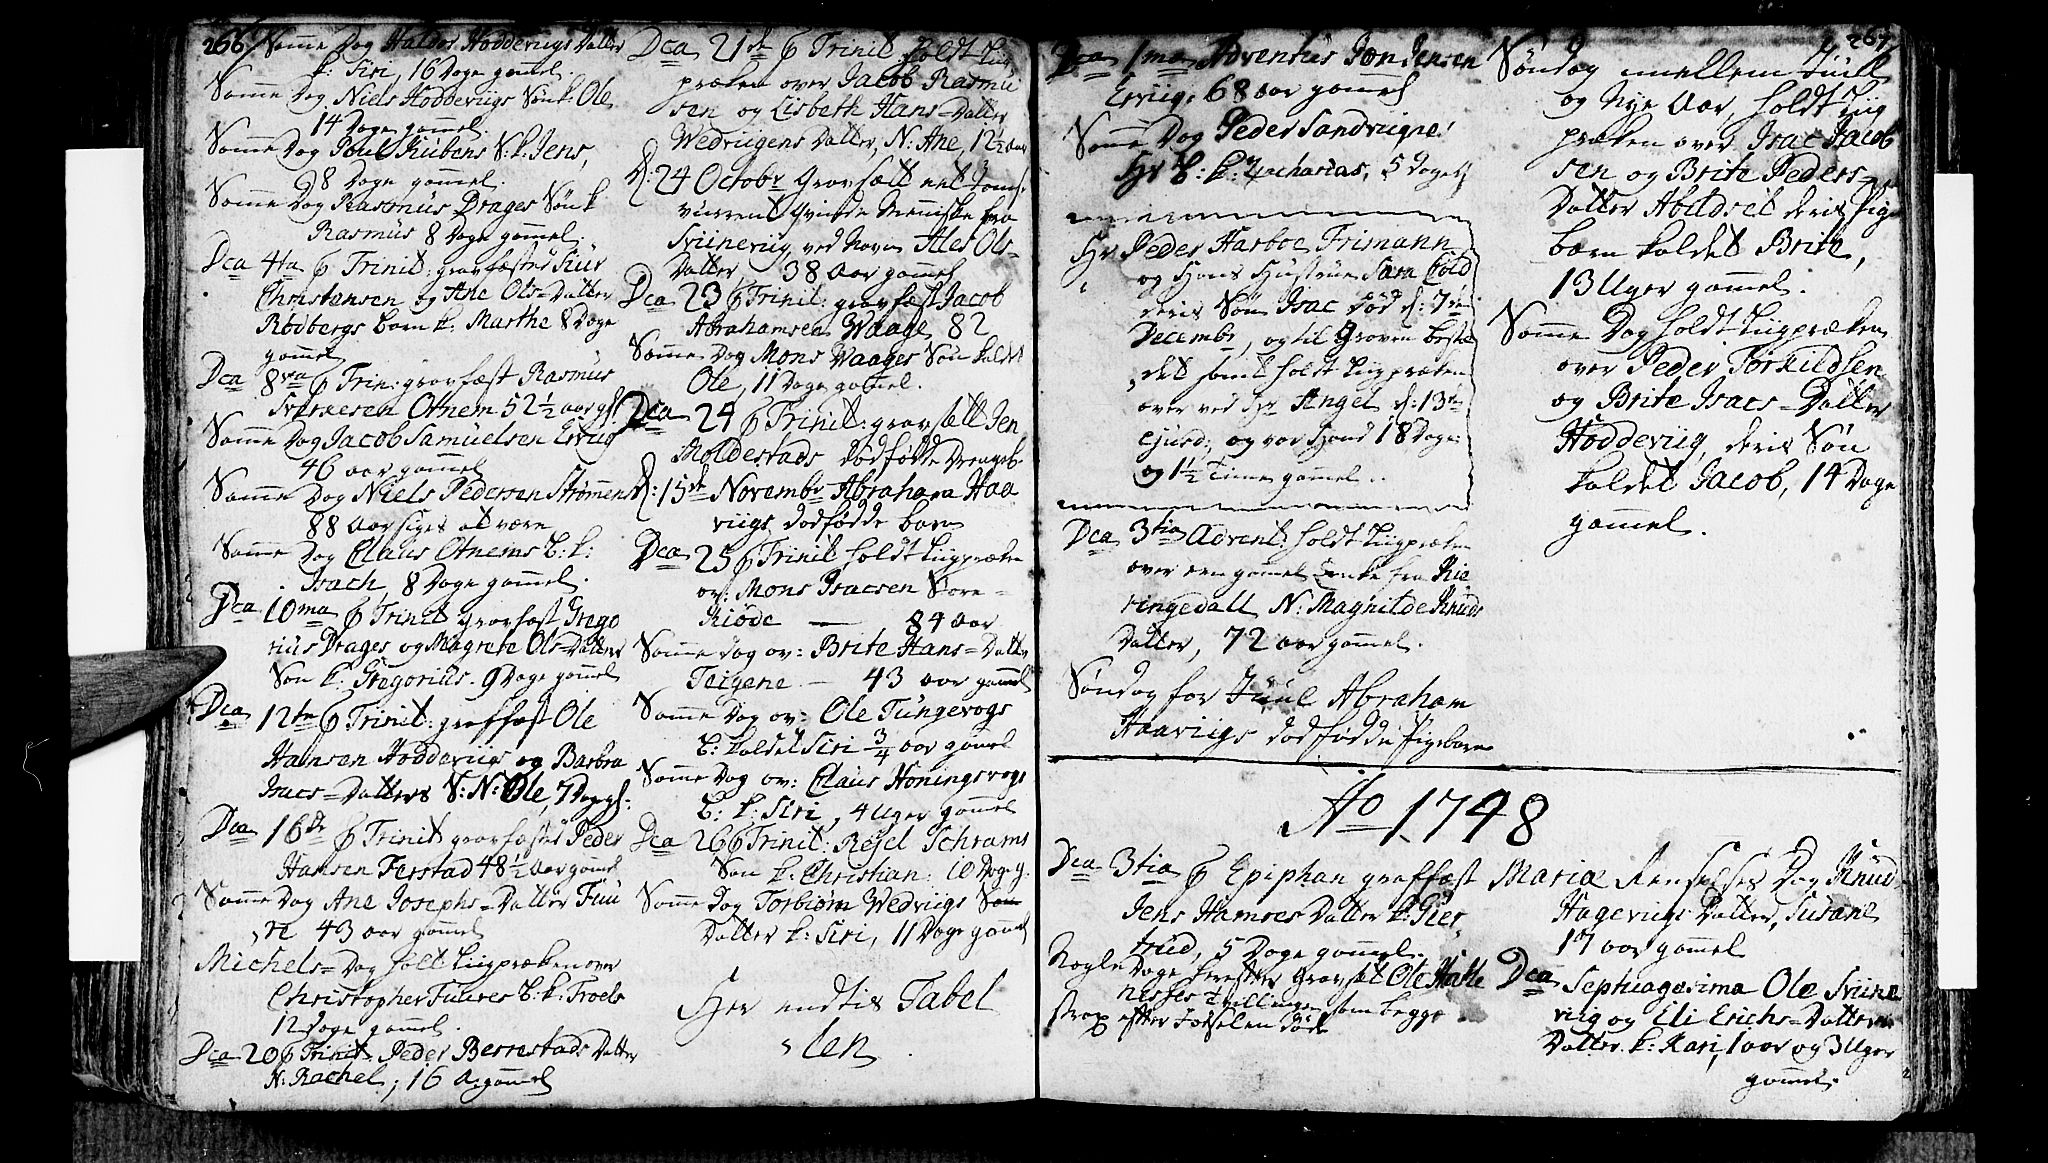 266
Somme Dag Haldor Hoddeviigs Datter
k: Siri, 16 Dage gammel.
Somme Dag Niels Hoddeviigs Søn k. Ole
14 Dage gammel.
Somme Dag Poul Rubens S. k. Jens,
8 Dage gammel.
Somme Dag Rasmus Drages Søn k
Rasmus 8 Dage gammel.
Dca 4ta p Trinit: gravfæsted Siur
Christensen og Ane Ols=Datter
Rødbergs barn k. Marthe 8 Dage
gammel
Dca 8va p Trin: gravfæst Rasmus
Sverkesen Otnem 52 1/2 aar gl.
Somme Dag Jacob Samuelsen Erviig
46 aar gammel
Somme Dag Niels Pedersen Strømen
88 Aar siges at være
Somme Dag Claus Otnems B: k:
Isach, 8 Dage gammel.
Dca 10ma p Trinit gravfæst Grego
rius Drages og Magrete Ols=Datter
Søn k. Gregorius. 9 Dage gammel
Dca 12te p Trinit: graffæst Ole
Hansen Hoddeviigs og Barbra
Isacs=Datters S: N: Ole, 7 Dage gl:
Dca 16de p Trinit gravfæsted Peder
Hansen Ferstad 48 1/2 Aar gammel
Somme Dag Ane Josephs=Datter Fuu
re 43 aar gammel
Michels=Dag holt Liigpræken over
Christopher Fuures B: k: Troels
12 Dage gammel.
Dca 20 p Trinit. Peder Berrestads Datter
N. Rachel, 16 A gammel
Dca 21de p Trinit holdt Liig
præken over Jacob Rasmu
sen og Lisbeth Hans=Datter
Wedviigens Datter, N. Ane, 12 1/2 aar
d: 24 Octobr Gravfælt eet Joms
vurrent Qvinde Menniske fra
Sviineviig ved Navn Ales Ols=
Datter 38 Aar gammel
Dca 23 p Trinit: gravfæst Jacob
Abrahamsen Waage, 82
Somme Dag Mons Waages Søn kaldet
Ole, 11 Dage gammel.
Dca 24 p Trinit: gravfælt Jen
Moldestads dødfødde Drengeb.
d: 15de Novembr Abraham Haa
viigs dødfødde barn
Dca 25 p Trinit holdt Liigpræken
ov: Mons Isacsen Store=
Riøde — 84 aar
Somme dag ov: Brite Hans=Datter
Teigene — 43 aar gammel
Somme Dag ov: Ole Tungevogs
B: kaldet Siri 3/4 aar gammel
Somme Dag ov: Claus Honingsvogs
B: k: Siri, 4 Uger gammel
Dca 26 p Trinit: Resel Schrams
Søn k. Christian: 10 Dage g.
Somme Dag Torbiørn Wedviigs Søn
Datter k: Siri, 11 Dage gammel
Her endtis Tabel
len
267
Dca 1ma Adventus Jon Jensen
Erviig, 68 aar gammel
Somme Dag Peder Sandviigne
Hr B: k: Zacharias, 5 Dage gl
Hr Peder Harboe Frimann
og Hans Hustrue Sara Cold
deris Søn Isac Død d: 7de
Decembr, og til Graven beste
det samt holdt Liigpræken
over ved Hr Angel d: 13de
ejusd: og var Hand 18 Dage
og 1 1/2 Time gammel.
Dca 3tia Advent: holdt Liigpræken
over een gamel Enke fra Rie
ringedall N: Magnilde Knuds
Datter, 72 aar gammel.
Søndag for Juul Abraham
Haaviigs dødfødde Pigebarn
Søndag mellem Juul
og Nye Aar, holdt Liig
præken over Isac Jacob
sen og Brite Peders=
Datter Abildset deris Pige
barn kaldet Brite,
13 Uger gammel.
Somme Dag holdt Liigpræken
over Peder Torkildsen
og Brite Isacs=Datter
Hoddeviig, deris Søn
kaldet Jacob, 14 Dage
gammel.
Ao 1748
Dca 3tia p Epiphan graffæst
Jens Hamres Datter k: Gier
trud, 5 Dage gammel.
Nogle Dage herefter Gravfælt Ole Halle
nesses Tvillinger som begge
strax efter Fødselen døde
Mariæ Renselses Dag Knud
Hageviigs Datter, Susane
17 aar gammel
Dca Septuagesima Ole Sviine
viig og Eli Erichs=Datter
Datter k: Kari, 1 aar og 3 Uger
gammel.